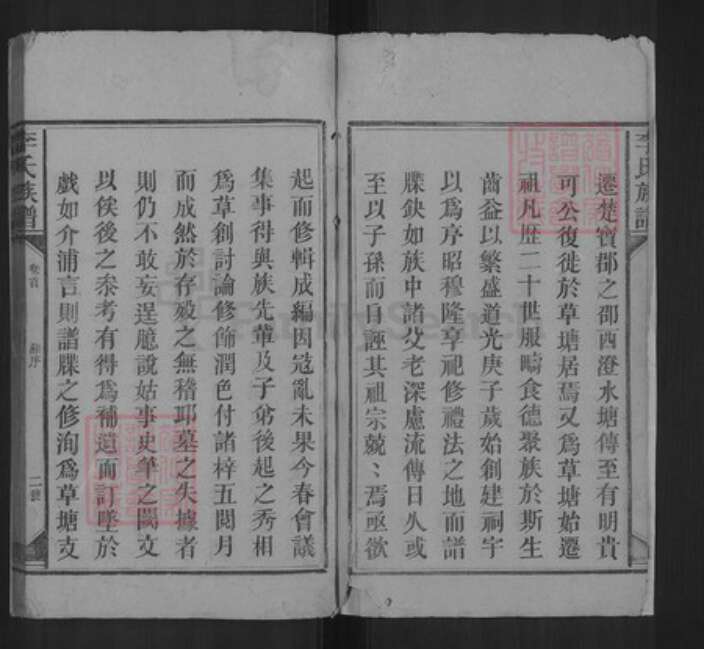 遷楚寶郡之邵西澄水塘傳至有明貴
可公復徙於草塘居焉又為草塘始遷
祖凡歷二十世服疇食德聚族於斯生
齒益以繁盛道光庚子歲始創建祠宇
以為序昭穆隆享祀修禮法之地而譜
牒缺如族中諸父老深慮流傳日久或
至以子孫而自誣其祖宗兢〻焉亟欲
起而修輯成編因寇亂未果今春會議
集事得與族先輩及子弟後起之秀相
為草創討論修飾潤色付諸梓五閱月
而成然於存歿之無稽邱墓之失據者
則仍不敢妄逞臆說姑事史筆之闕文
以俟後之叅考有得為補遺而訂墜於
戲如介浦言則譜牒之修洵為草塘支
李氏族譜
卷首
序
李氏族譜
FamilySearch